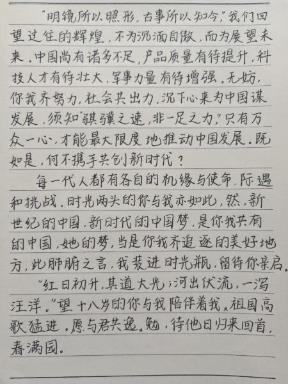 "明镜所以照形,古事所以知今,"我们回
望过往的辉煌,不为沉湎自傲,而为展望未
来。中国尚有诸多不足,产品质量有待提升,科
技人才有待壮大,军事力量有待增强。无妨,
你我齐努力,社会共出力,沉下心来为中国谋
发展。须知"骐骥之速,非一足之力。"只有万
众一心,才能最大限度地推动中国发展。既
如是,何不携手共创新时代?
每一代人都有各自的机缘与使命,际遇
和挑战。时光两头的你与我亦如此,然,新
世纪的中国,新时代的中国梦,是你我共有
的中国,她的梦,当是你我齐追逐的美好地
方,此肺腑之言,我装进时光瓶,留待你亲启。
"红日初升,其道大光;河出伏流,一泻
汪洋。"望十八岁的你与我陪伴着我,祖国高
歌猛进。愿与君共逸。勉,待他日归来回首,
春满园。